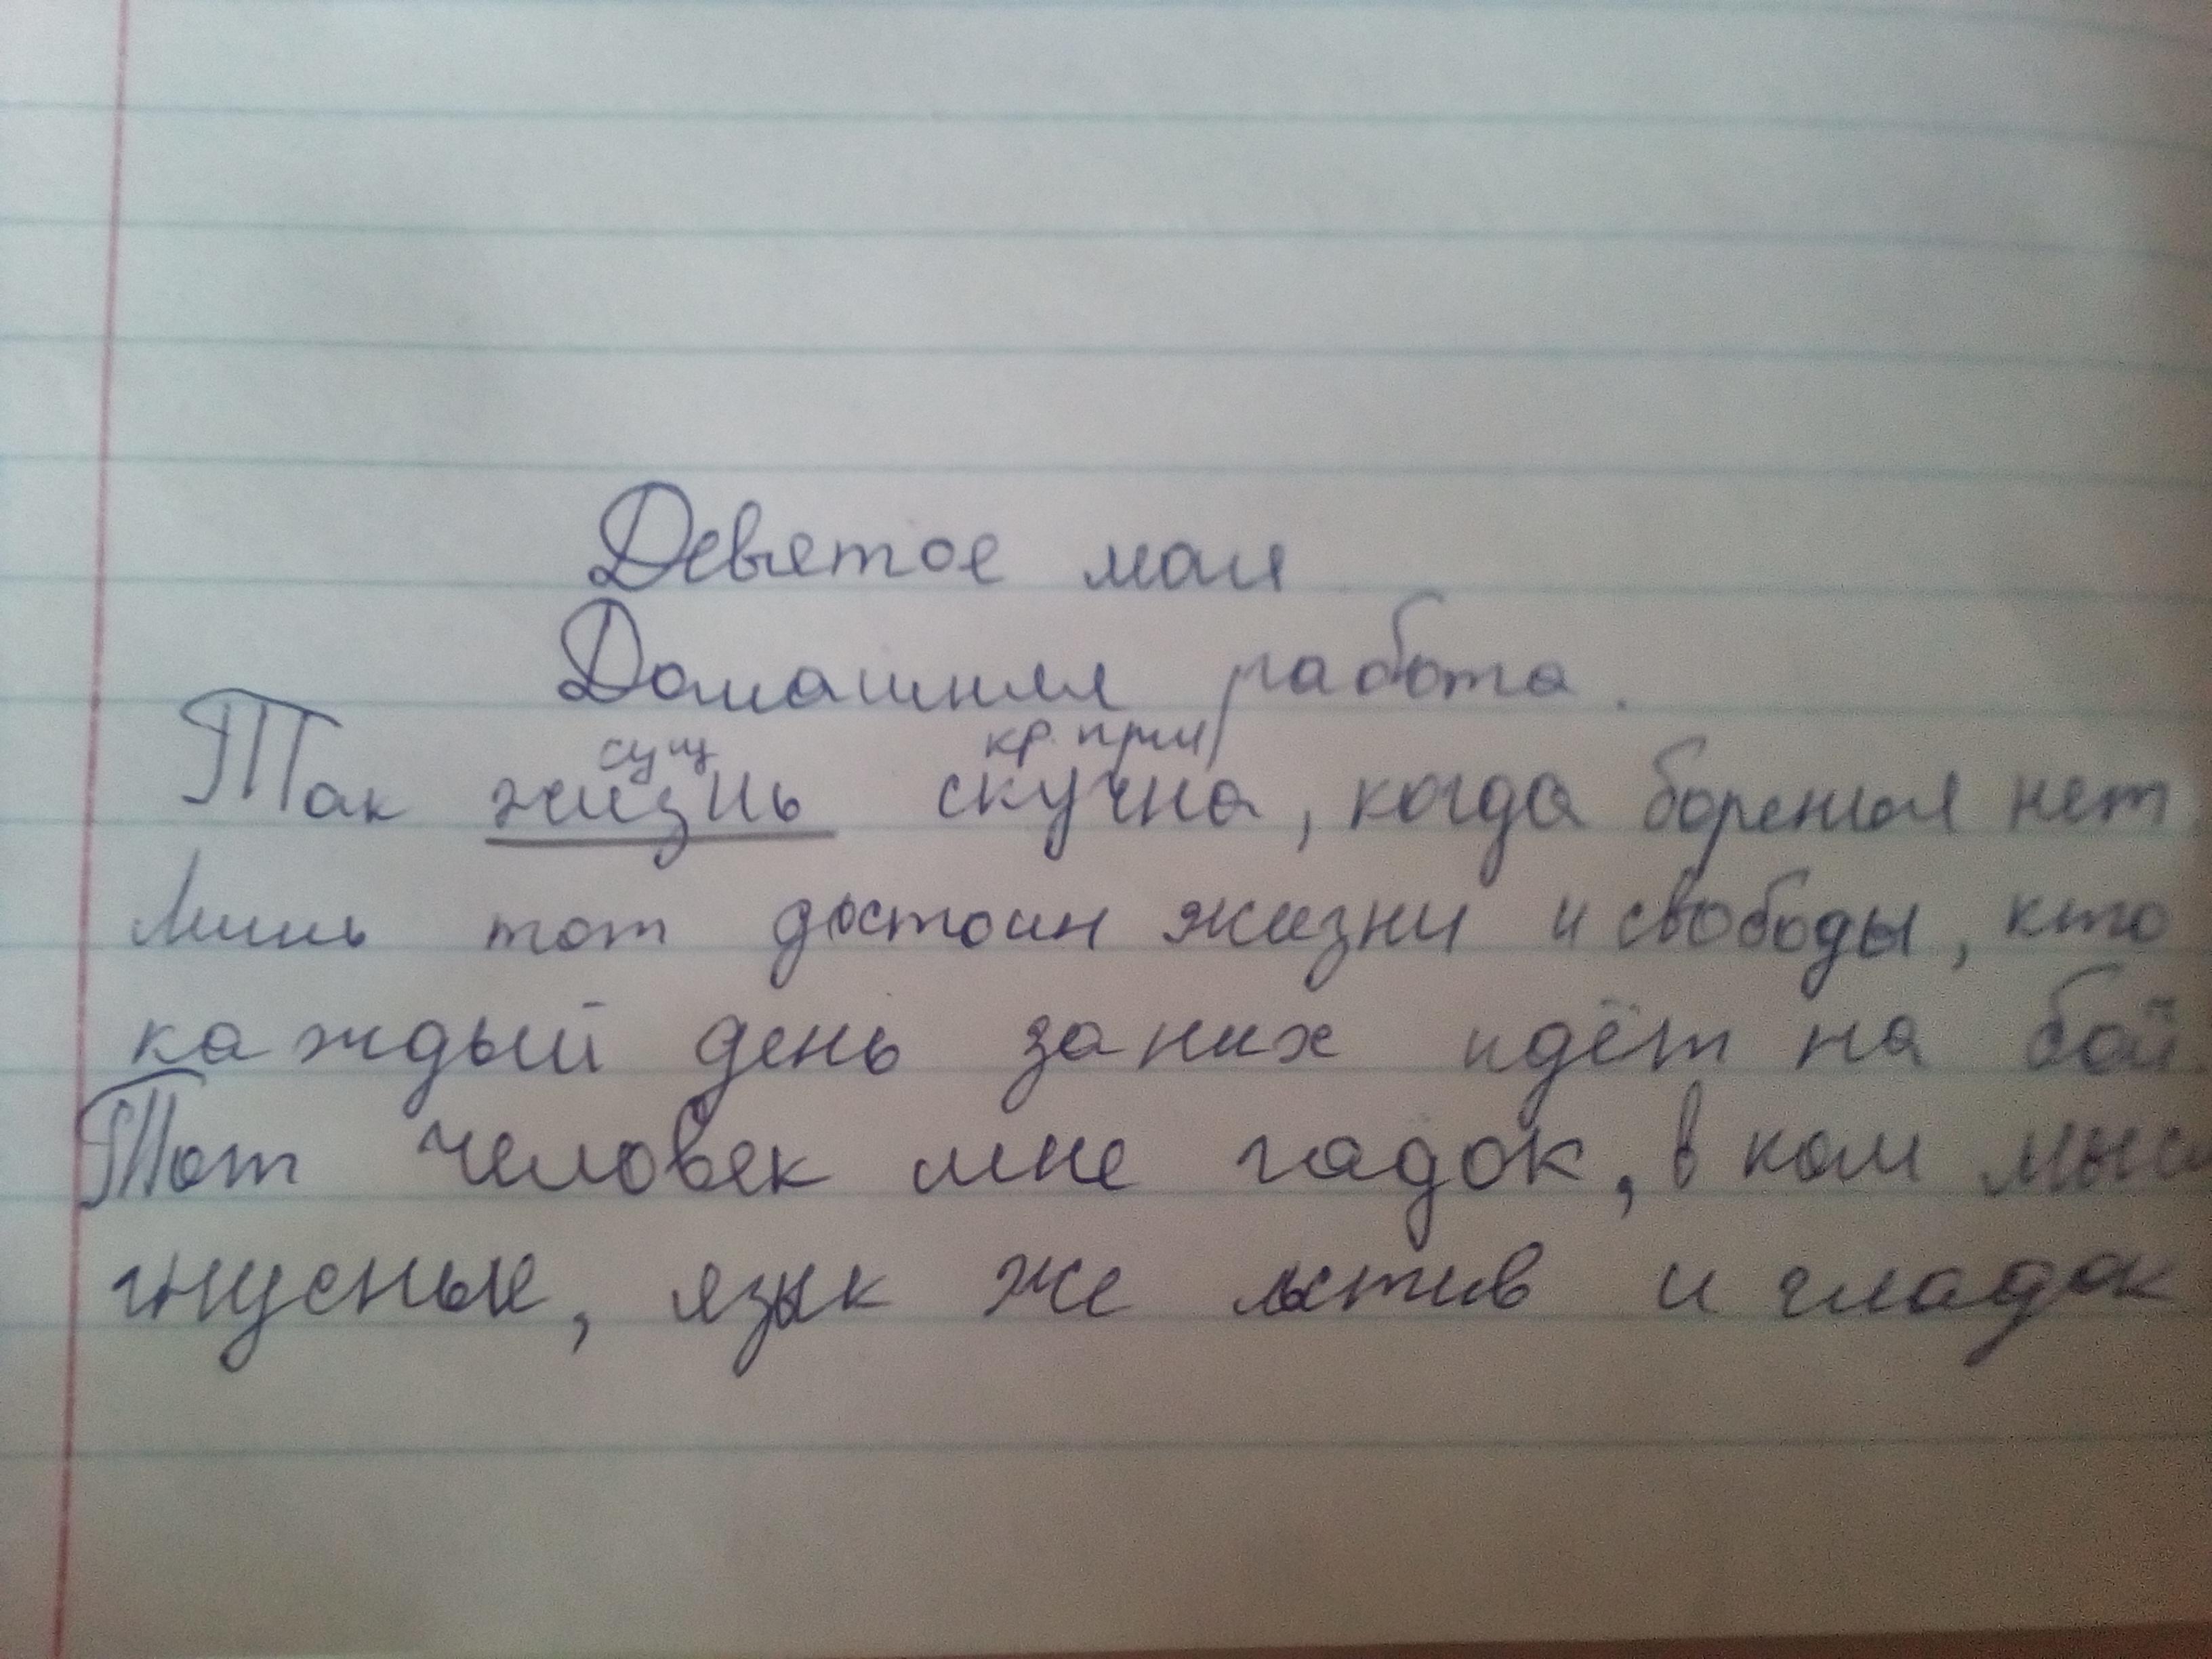 Девятое мая
Домашняя работа.
сущ кр. прил
Так жизнь скучна, когда боренья нет.
Лишь тот достоин жизни и свободы, кто
каждый день за них идёт на бой.
Тот человек мне гадок, в ком мысл
гнусные, язык же льстив и гладок